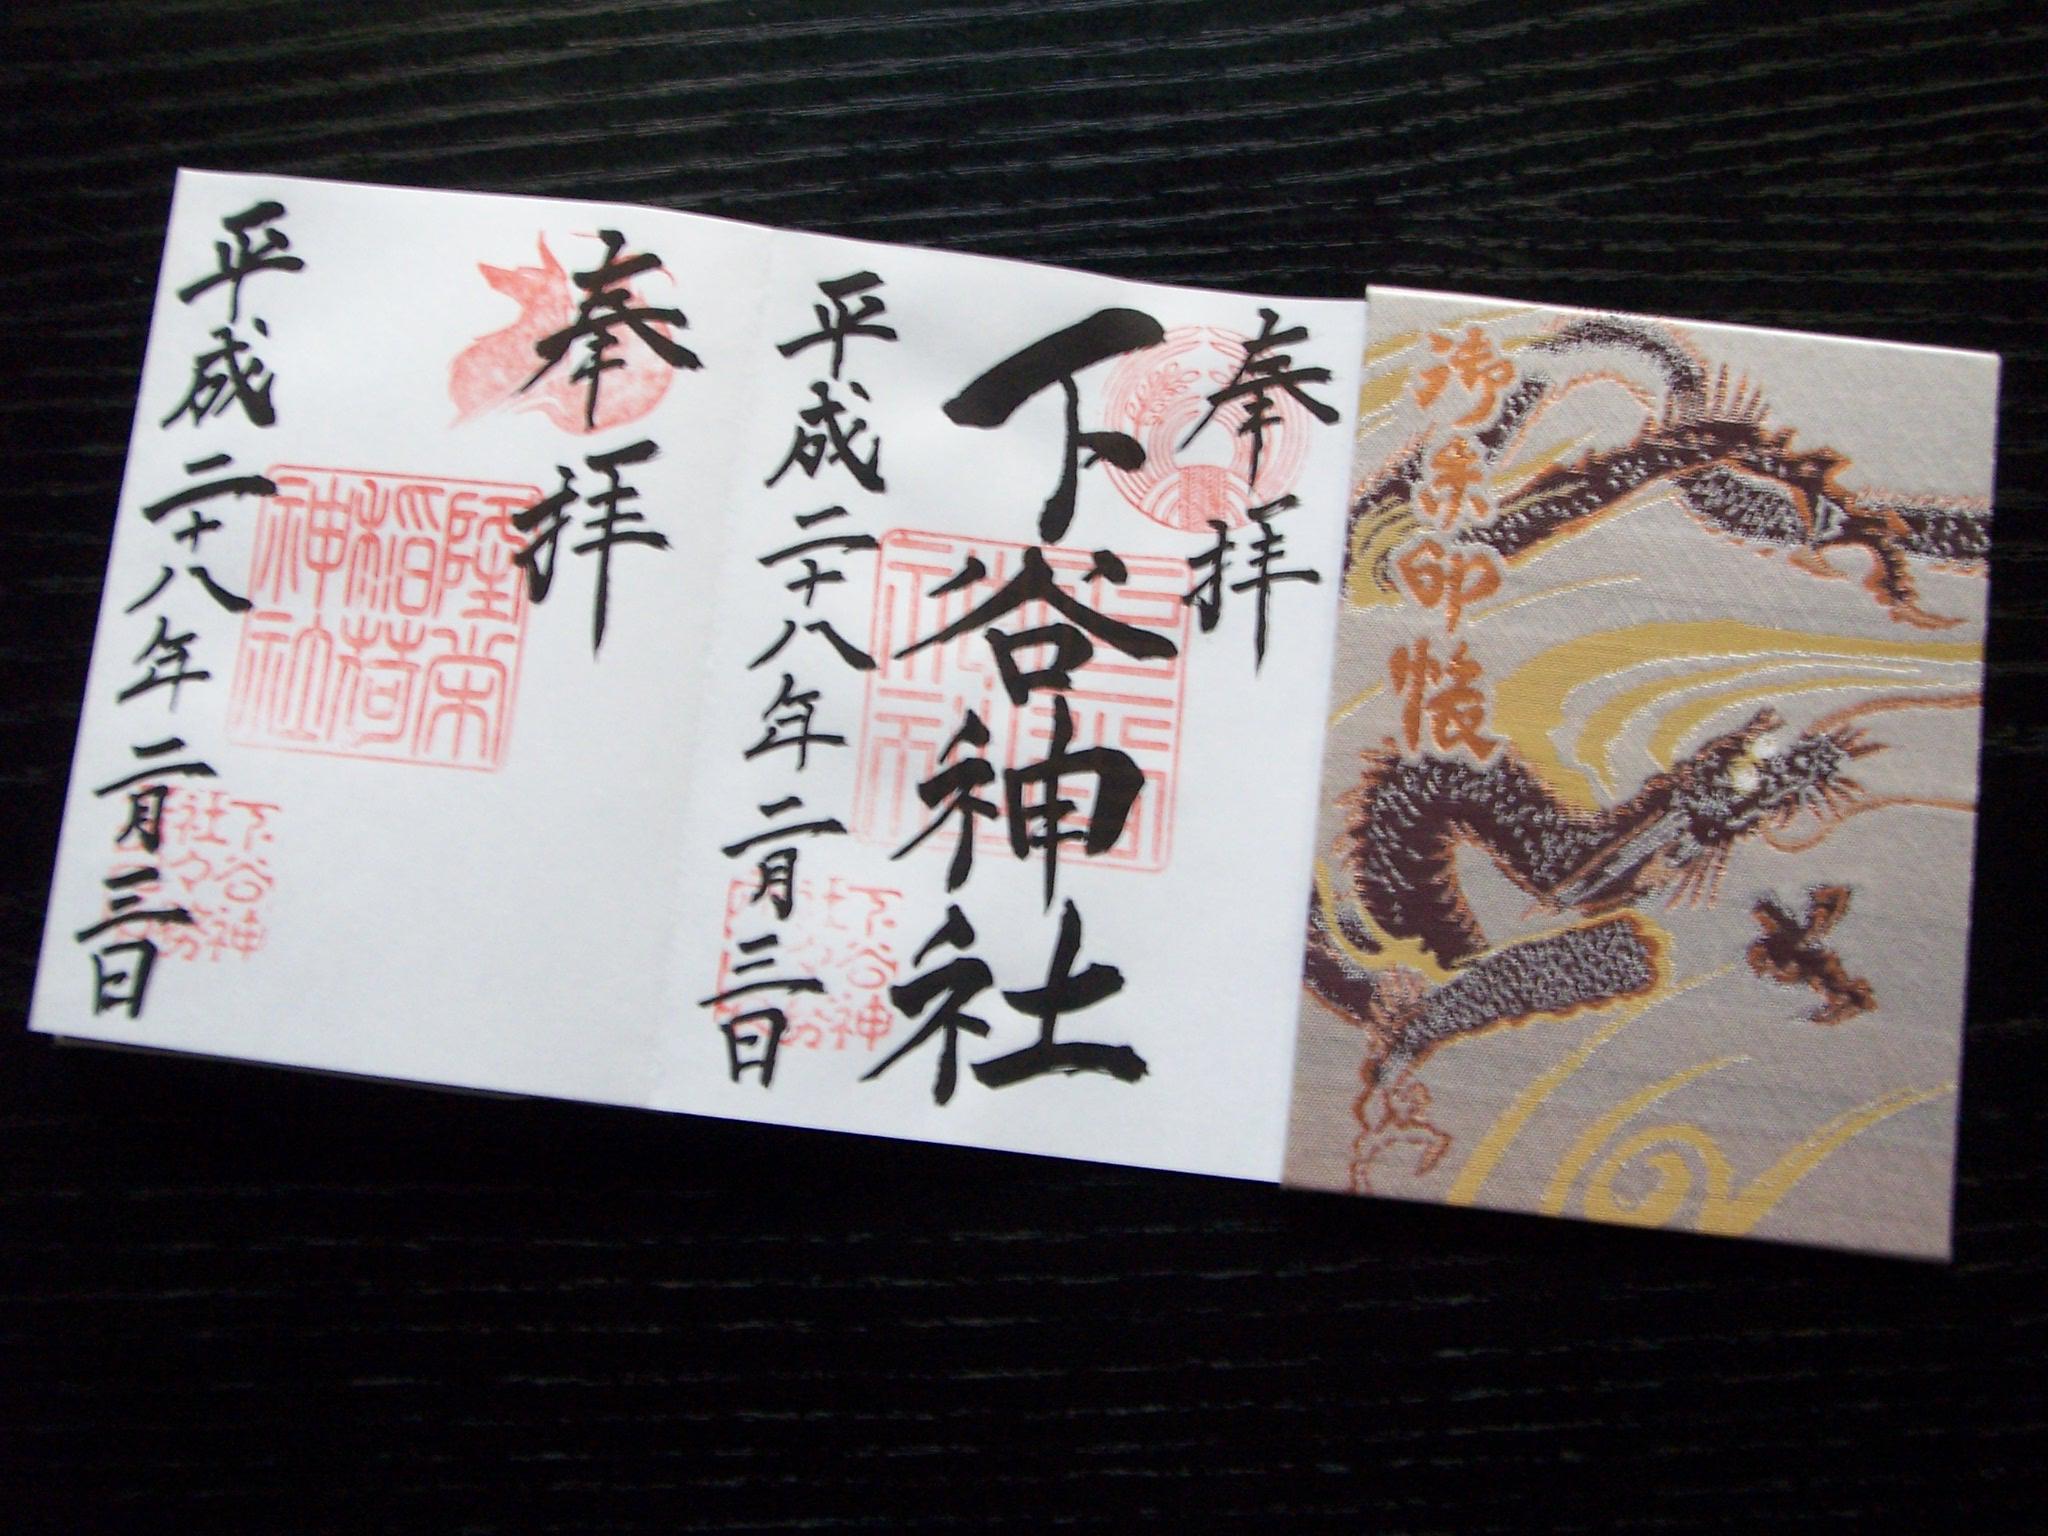 御朱印帳
奉拝
下谷神社
平成二十八年二月三日
下谷神
奉拝
隆栄
稲荷
神社
平成二十八年二月三日
下谷神